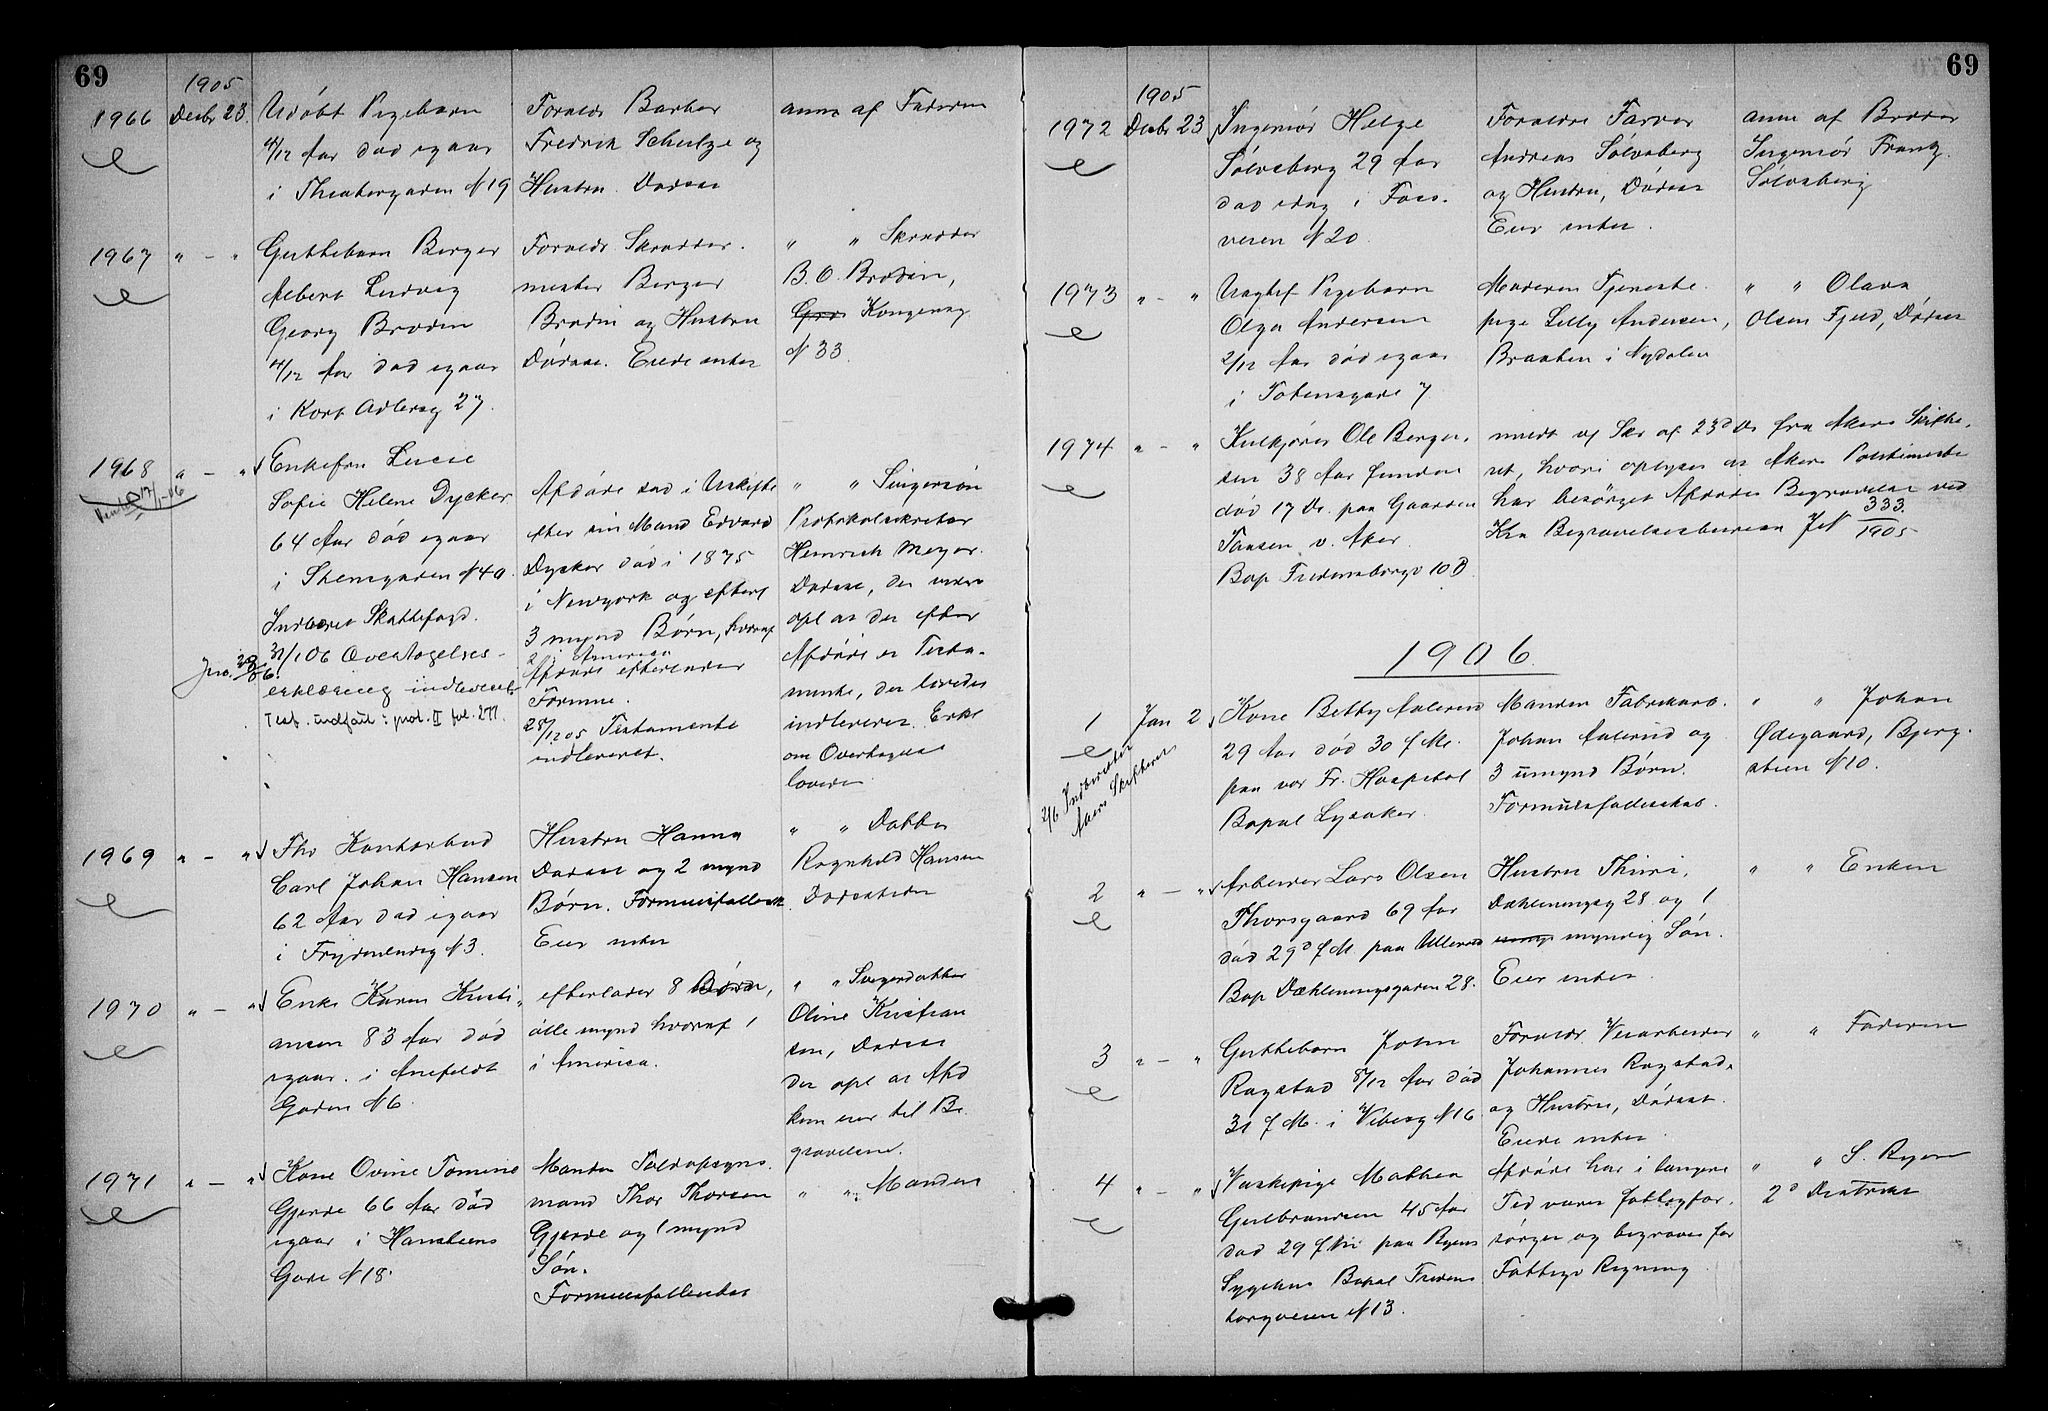 69
1905
1966 Decbr 23.
Udøbt Pigebarn
4/12 Aar død igaar
i Theatergaden N 19
Foræld Barber
Fredrik Schultze og
Hustru. Dødsan
anm af Faderen
1967 " - "
Guttebarn Berger
Albert Ludvig
Georg Brodin
4/12 Aar død igaar
i Kort Adlersg 27.
Foræld Skrædder
mester Berger
Brodin og Hustru
Dødsan. Eiede intet
" " Skrædder
B. O. Brodin,
Kongensg
N 33.
1968 " - "
Enkefru Lucie
Sofie Helene Dycker
64 Aar død igaar
i Stensgaden N 40.
Indberet Skattefogd.
31/1 06 Overtagelses-
erklæring indleveret
Test. indført i prot. II fol. 277.
Jno. 28/06.
Afdøde sad i Uskifte
efter sin Mand Edvard
Dycker død i 1875
i Newyork og efterl
3 mynd Børn, hvoraf
2 i America
Afdøde efterlader
Formue.
28/12 05 Testamente
indleveret.
" " Svigersøn
Protokolsekretær
Heinrich Meyer.
Dødsan, der videre
opl at der efter
Afdøde er Testa-
mente, der lovedes
indleveret. Erkl
om Overtagelse
lovedes
1969 " - "
Fhv Kontorbud
Carl Johan Hansen
62 Aar død igaar
i Frydenlundsg N 3.
Hustru Hanna
Dødsan og 2 mynd
Børn. Formuesfællessk.
Eier intet
" " Datter
Ragnhild Hansen
Dødsstedet
1970 " - "
Enke Karen Kristi-
ansen 83 Aar død
igaar i Anefeldt
Gaden N 6.
efterlader 8 Børn,
alle mynd hvoraf 1
i America.
" " Svigerdatter
Oline Kristian
sen, Dødsan
der opl at Afd
kun eier til Be-
gravelsen.
1971 " - "
Kone Ovine Tomine
Gjerde 66 Aar død
igaar i Hansteens
Gade N 18.
Manden Toldopsyns.
mand Thor Thorsen
Gjerde og 1 mynd
Søn.
Formuesfællesskab
" " Manden
69
1905
1972 Decbr 23
Ingeniør Helge
Sølvsberg 29 Aar
død idag i Foss-
veien N 20.
Forældre Farver
Andreas Sølvsberg
og Hustru, Dødsan
Eier intet.
anm af Broder
Ingeniør Frantz
Sølvsberg
1973 " - "
Uægtef Pigebarn
Olga Andersen
2/12 Aar død igaar
i Totensgade 7
Moderen Tjeneste-
pige Lilly Andersen,
Braaten i Nydalen
" " Olava
Olsen Fjeld, Dødsan
1974 " - "
Kulkjører Ole Berger-
sen 38 Aar funden
død 17 Ds. paa Gaarden
Taasen v. Aker.
Bop Fredensborgv 10 B.
meldt v/ Skr af 23d Ds fra Akers Skifte-
ret, hvori oplyses at Akers Politimester
har besørget Afdødes Begravelse ved
Kra Begravelsesbureau JN 333/1905
1906.
1 Jan 2
Kone Betty Aalerud
29 Aar død 30 f M.
paa vor Fr. Hospital
Bopæl Lysaker.
2/6 Indberettet
Akers Skifteret
Manden Fabrikarb.
Johan Aalerud og
3 umynd Børn.
Formuesfællesskab.
" " Johan
Ødegaard, Bjerg-
stien N 10.
2 " - "
Arbeider Lars Olsen
Thorsgaard 69 Aar
død 29d f M paa Ullevaal
Bop Dæhleningsgaden 28.
Hustru Thuri,
Dæhleningsg 28 og 1
myndig Søn.
Eier intet
" " Enken
3 " - "
Guttebarn John
Rogstad 8/12 Aar død
31 f M. i Vibesg N 16
Foræld. Veiarbeider
Johannes Rogstad
og Hustru, Dødsan.
Eiede intet
" " Faderen
4 " - "
Vaskepige Mathea
Gulbrandsen 45 Aar
død 29 f M paa Byens
Sygehus Bopæl Fredens
borgveien N 13.
Afdøde har i længere
Tid været fattigfor-
sørget og begraves for
Fattigv Regning
" " S. Ryen
2d Distrikt